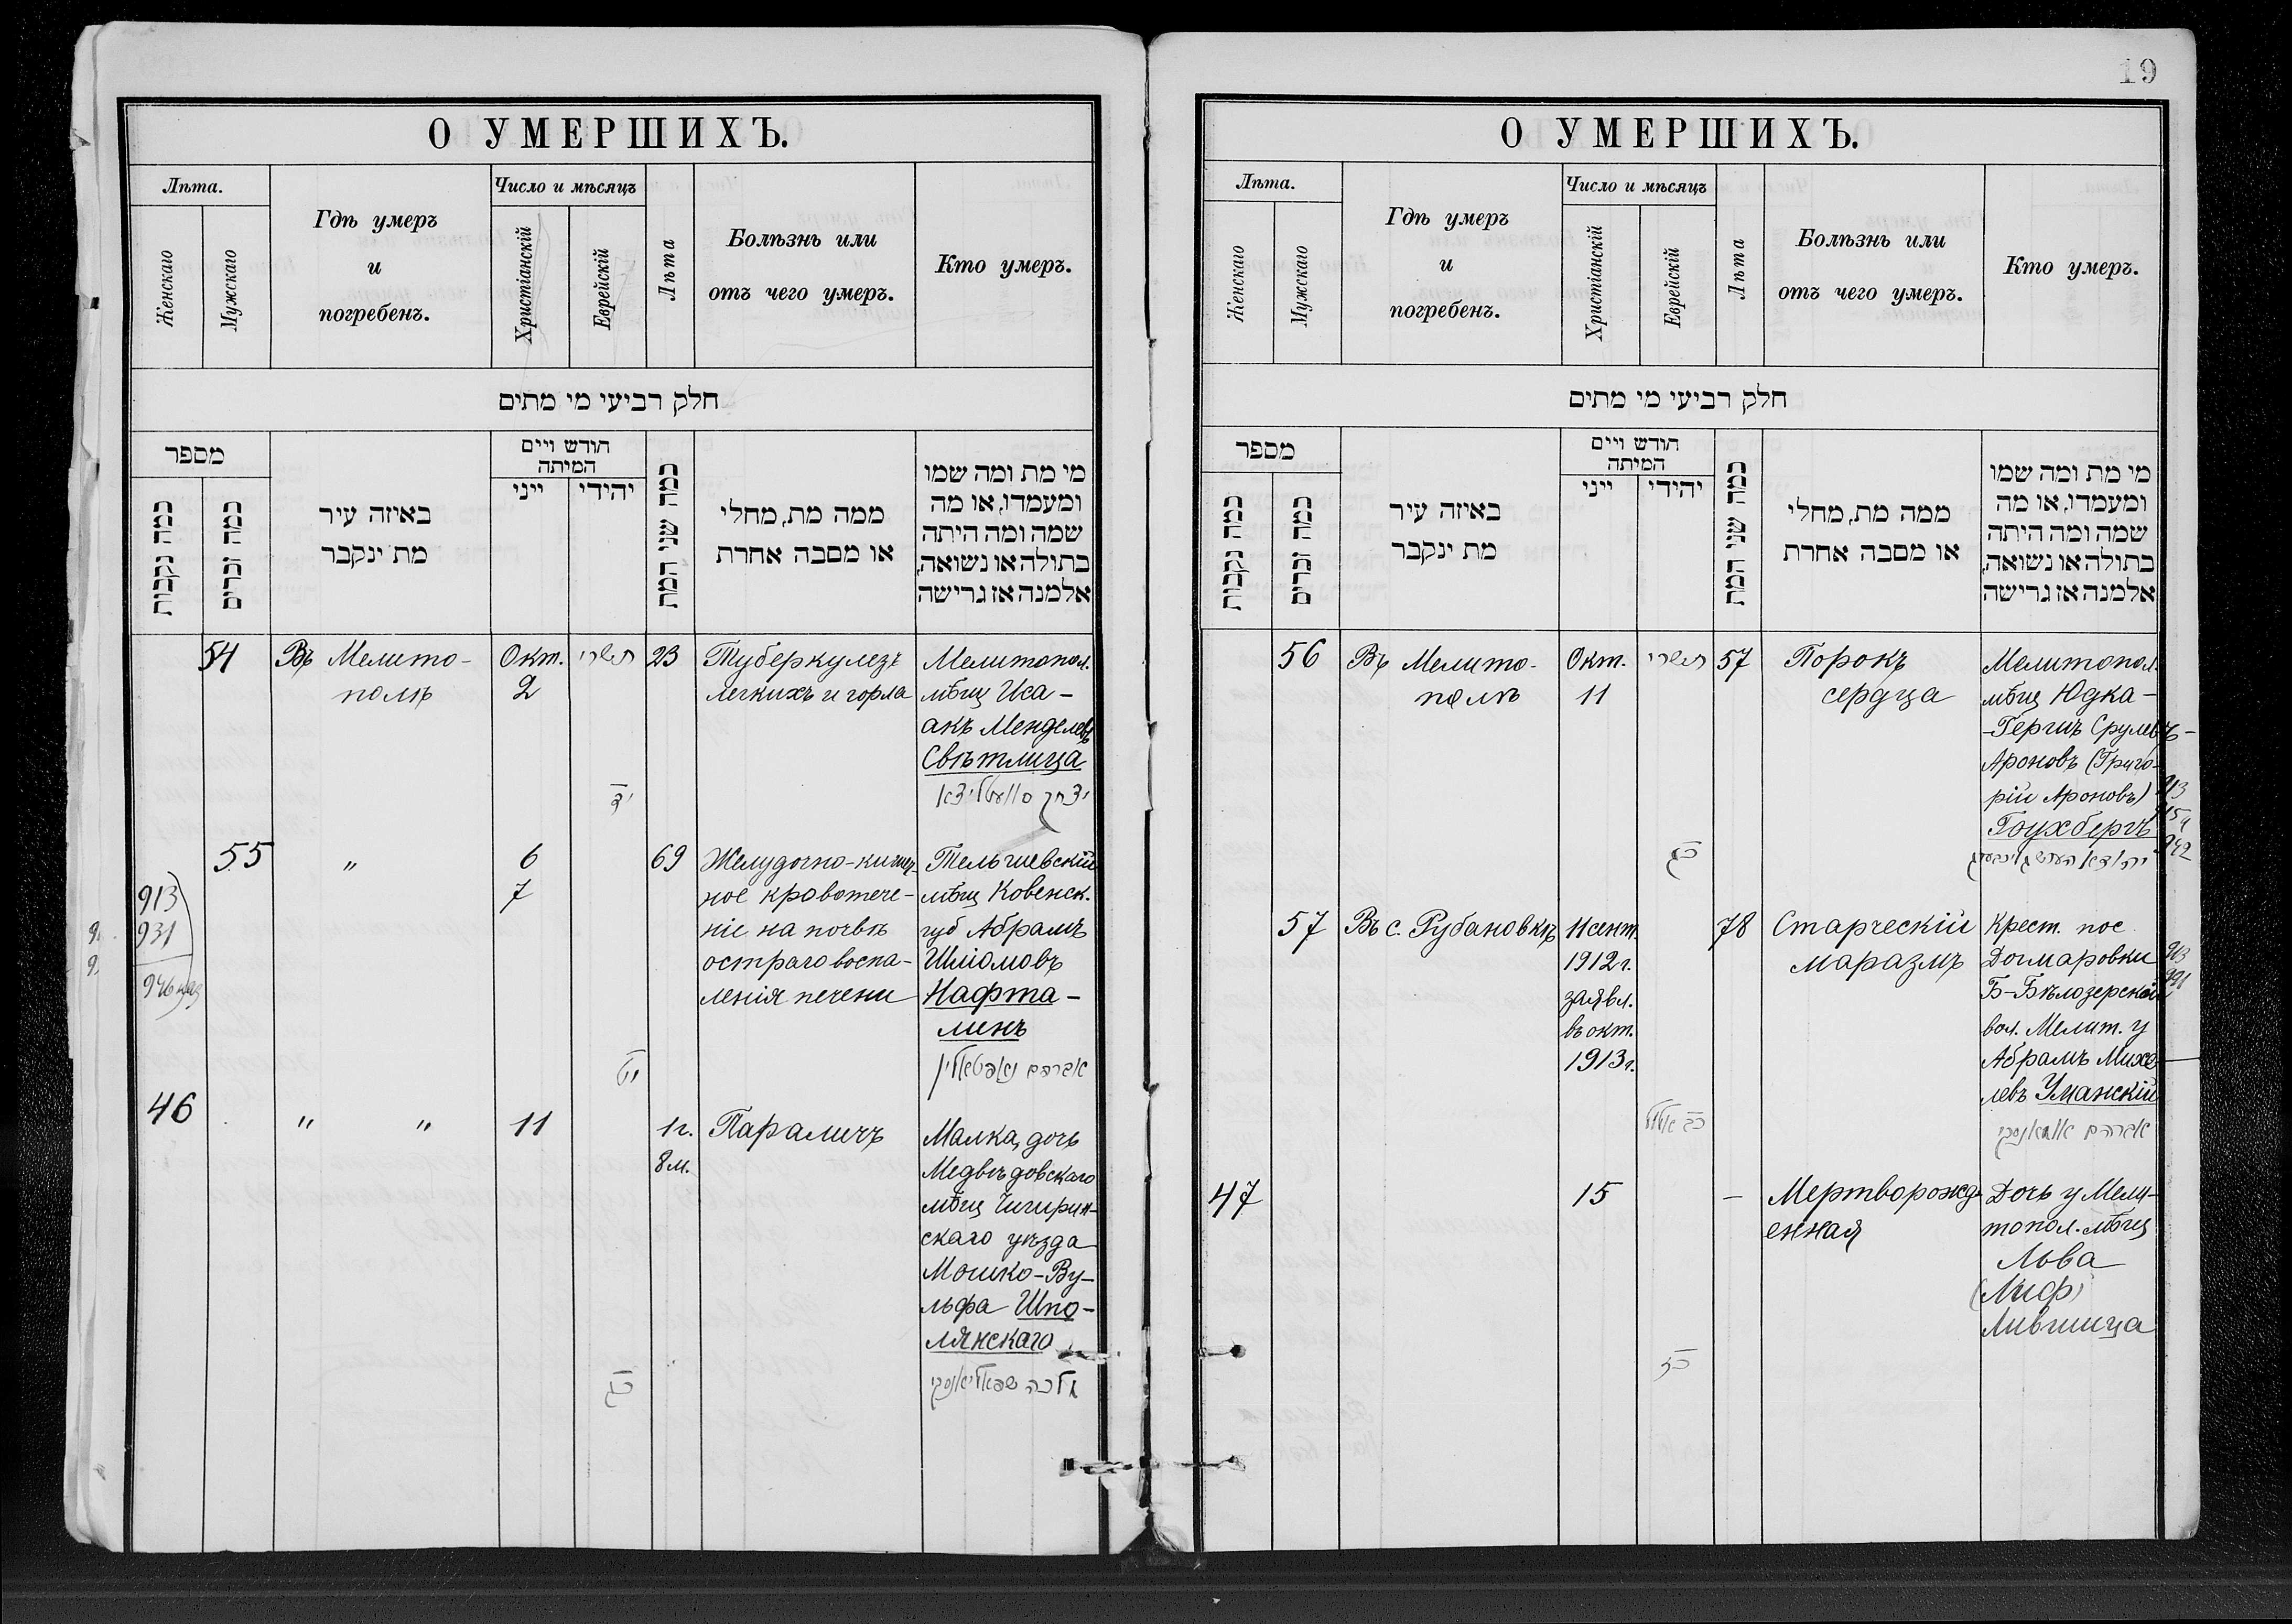 О УМЕРШИХЪ.
Лѣта.
Женскаго
Мужскаго
Гдѣ умеръ
и
погребенъ.
Число и мѣсяцъ
Христіанскій
Еврейскій
Лѣта
Болѣзнь или
отъ чего умеръ.
Кто умеръ.
חלק רביעי מי מתים
מספר
כמה נקבות
כמה זכרים
באיזה עיר
מת ינקבר
חודש ויים
המיתה
ייני
יהידי
כמה שני המת
ממה מת, מחלי
או מסבה אחרת
מי מת ומה שמו
ומעמדו, או מה
שמה ומה היתה
בתולה או נשואה,
אלמנה אז גרישה
54
Въ Мелито-
полѣ
Окт.
2
תשרי
יד
23
Туберкулезъ
легкихъ и горла
Мелитопол.
мѣщ Иса-
акъ Менделевъ
Свѣтлица
יצחק סוועטליצא
55
"
6
7
יט
69
Желудочно-кишеч-
ное кровотече-
ніе на почвѣ
остраго воспа-
ленія печени
Тельшевскій
мѣщ Ковенск.
губ Абрамъ
Шліомовъ
Нафта-
линъ
אברהם נאפטאלין
913
931
46
" "
11
כג
1 г.
8 м.
Параличъ
Малка, дочь
Медвѣдовскаго
мѣщ Чигирин-
скаго уѣзда
Мошко-Ву-
льфа Шпо-
лянскаго
מלכה שפאליאנסקי
19
О УМЕРШИХЪ.
Лѣта.
Женскаго
Мужскаго
Гдѣ умеръ
и
погребенъ.
Число и мѣсяцъ
Христіанскій
Еврейскій
Лѣта
Болѣзнь или
отъ чего умеръ.
Кто умеръ.
חלק רביעי מי מתים
מספר
כמה נקבות
כמה זכרים
באיזה עיר
מת ינקבר
חודש ויים
המיתה
ייני
יהידי
כמה שני המת
ממה מת, מחלי
או מסבה אחרת
מי מת ומה שמו
ומעמדו, או מה
שמה ומה היתה
בתולה או נשואה,
אלמנה אז גרישה
56
Въ Мелито-
полѣ
Окт.
11
תשרי
כג
57
Порокъ
сердца
Мелитопол.
мѣщ Юдка-
-Гершъ Срулевъ-
Ароновъ (Григо-
рій Ароновъ)
Гоухбергъ
913
942
57
Въ с. Рубановкѣ
11 сент.
1912 г.
заявл.
въ окт.
1913 г.
אלול
78
Старческій
маразмъ
Крест. пос
Домаровки
Б-Бѣлозерской
вол. Мелит. у
Абрамъ Михе-
левъ Уманскій
אברהם אומאנסקי
47
15
–
Мертворожд-
енная
Дочь у Мели-
топол. мѣщ
Льва
(Лифа)
Лившица